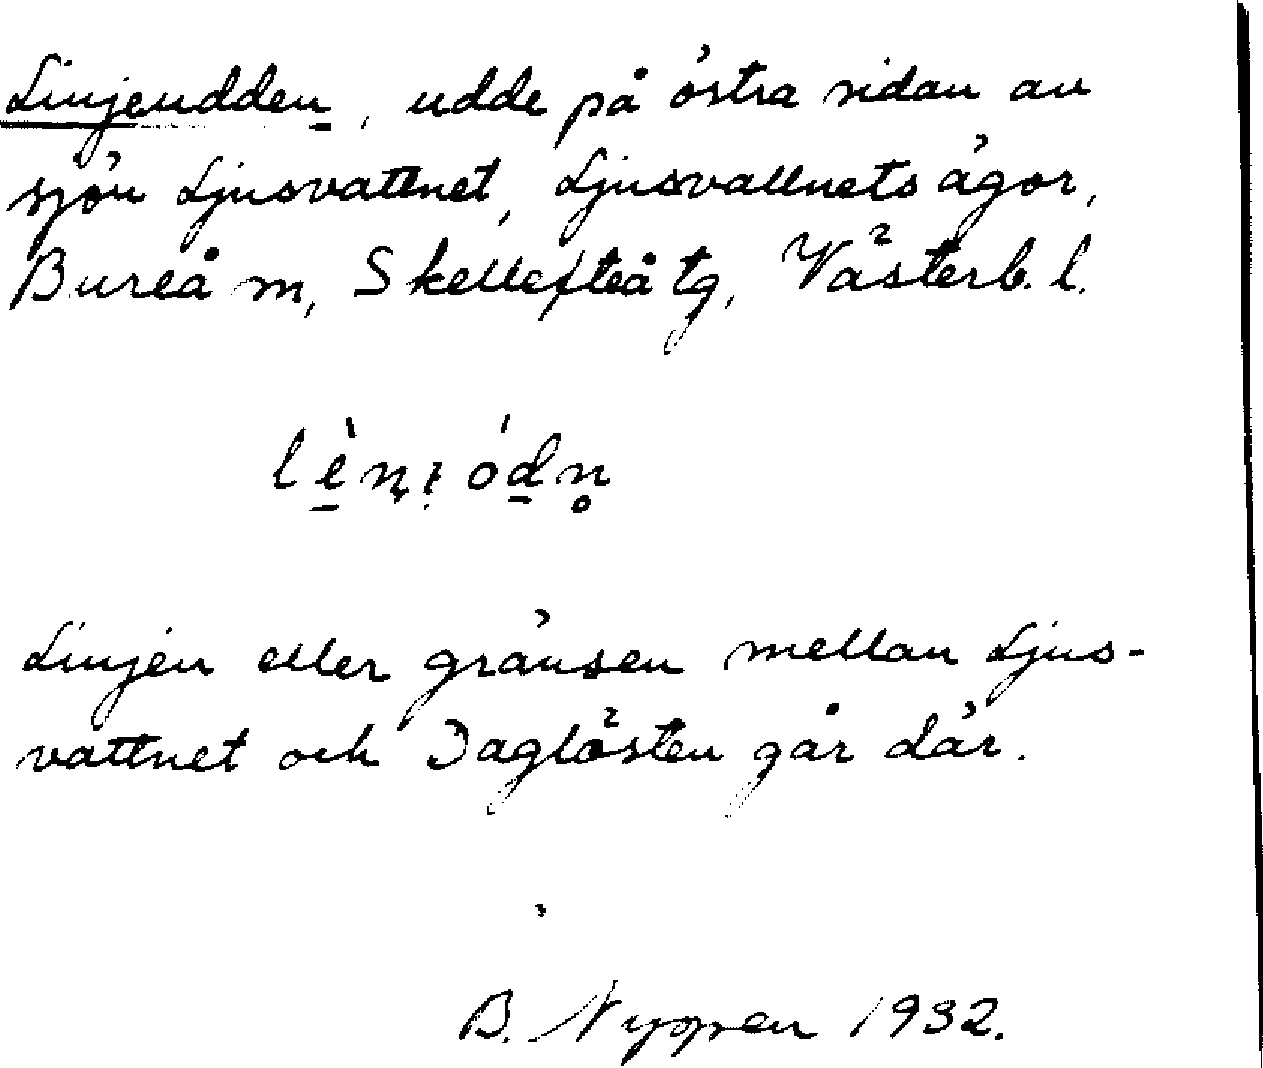 Linjeudden, udde på östra sidan av
sjön Ljusvattnet, Ljusvattnets ägor,
Bureå m, Skellefteå tg, Västerb. l.
Linjen eller gränsen mellan Ljus-
vattnet och Daglösten går där.
B. Nygren 1932.